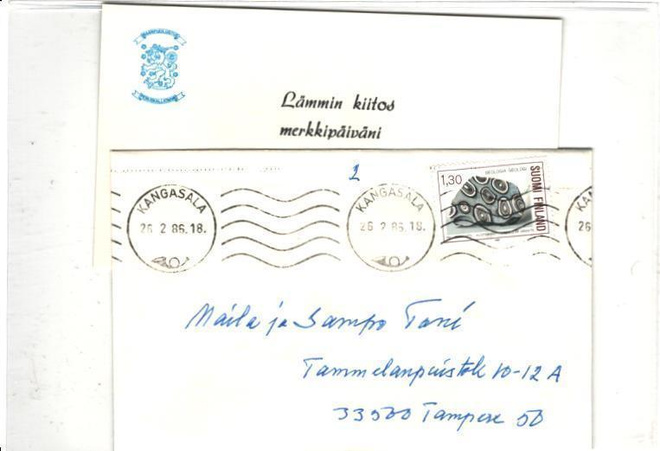 Lämmin kiitos
merkkipäiväni
2
KANGASALA
26 2 86.18.
KANGASALA
26 2 86.18.
KA
26
1,30
SUOMI FINLAND
Maila ja Sampo Tani
Tammelanpuistok 10-12 A
33500 Tampere 50